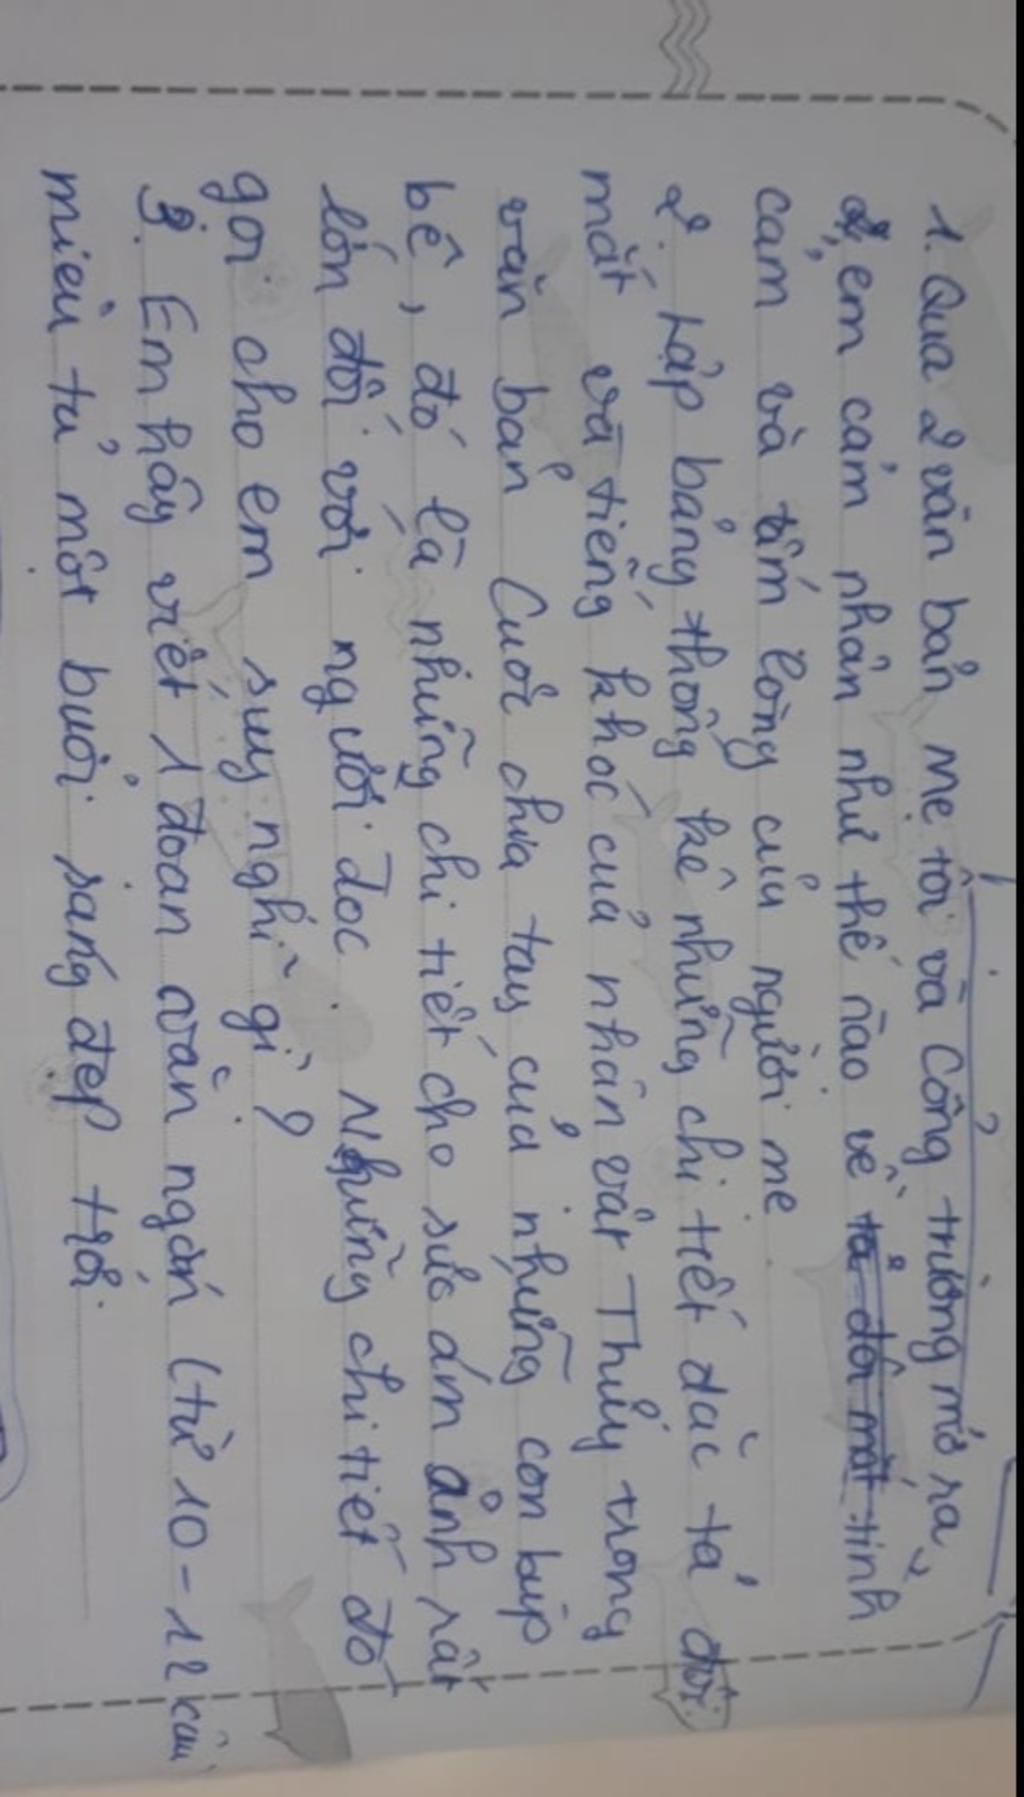 1. Qua 2 văn bản Mẹ tôi và Cổng trường mở ra,
em cảm nhận như thế nào về tình
cảm và tấm lòng của người mẹ.
2. Lập bảng thống kê những chi tiết đặc tả đôi
mắt và tiếng khóc của nhân vật Thủy trong
văn bản Cuộc chia tay của những con búp
bê, đó là những chi tiết cho sức ám ảnh rất
lớn đối với người đọc. Những chi tiết đó
gợi cho em suy nghĩ gì?
3. Em hãy viết 1 đoạn văn ngắn (từ 10-12 câu
miêu tả một buổi sáng đẹp trời.